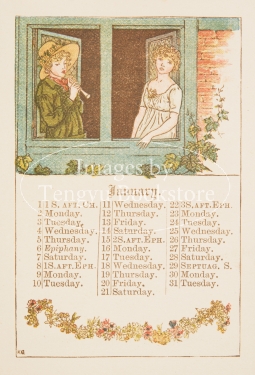 January.
1 1 S. AFT. CH.
2 Monday.
3 Tuesday.
4 Wednesday.
5 Thursday.
6 Epiphany.
7 Saturday.
8 1S. AFT. EPH.
9 Monday.
10 Tuesday.
11 Wednesday.
12 Thursday.
13 Friday.
14 Saturday.
15 2S. AFT. EPH.
16 Monday.
17 Tuesday.
18 Wednesday.
19 Thursday.
20 Friday.
21 Saturday.
22 3S. AFT. EPH.
23 Monday.
24 Tuesday.
25 Wednesday.
26 Thursday.
27 Friday.
28 Saturday.
29 SEPTUAG. S.
30 Monday.
31 Tuesday.
Images by